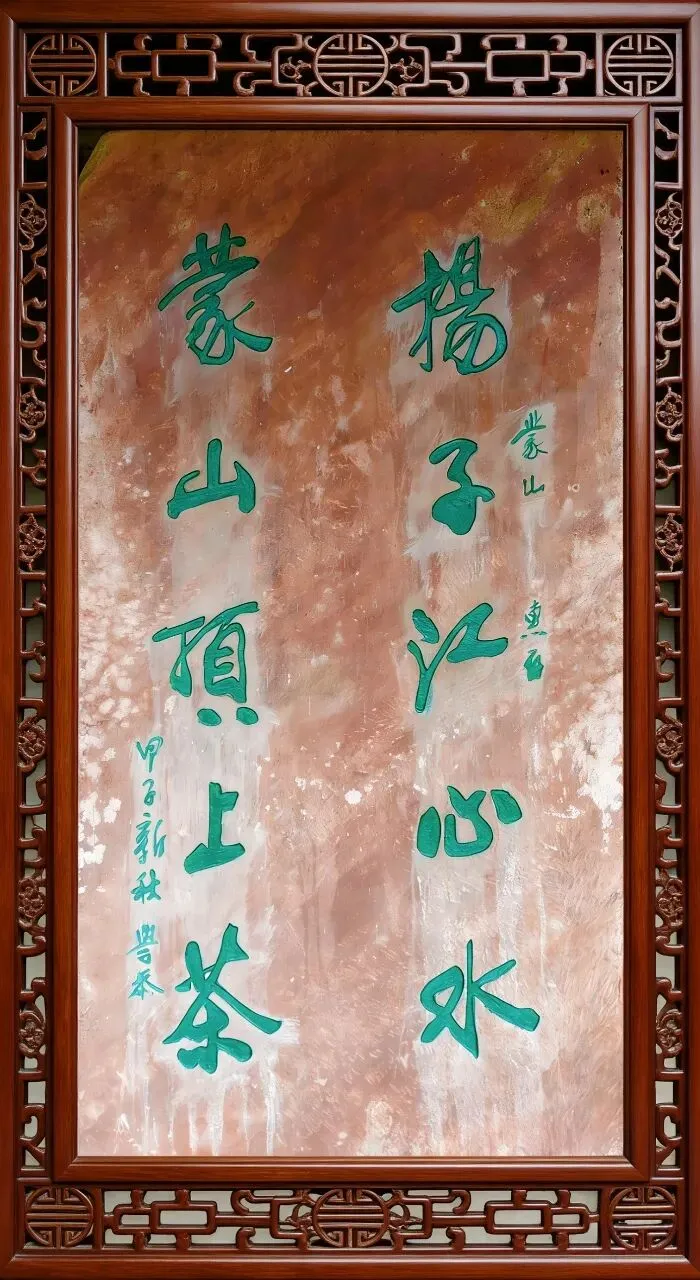 蒙山
揚子江心水
蒙山頂上茶
甲子新秋